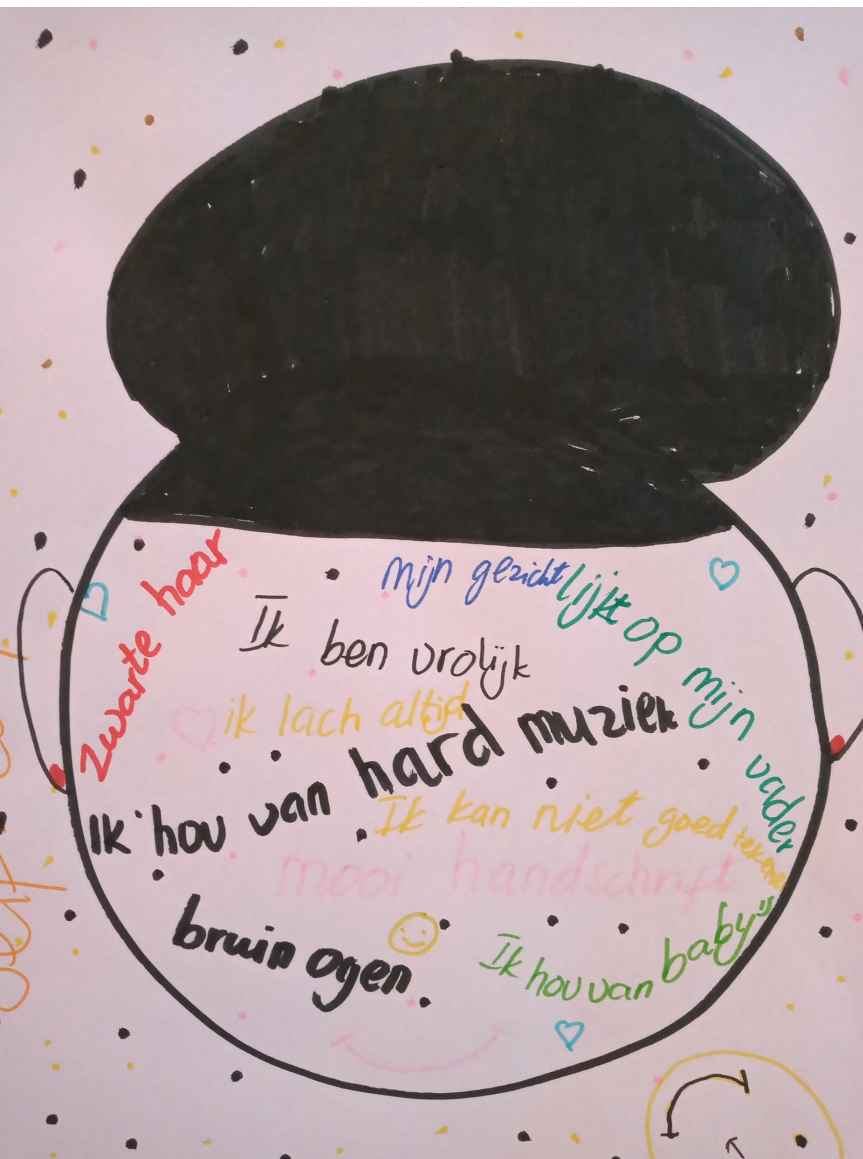 zwarte haar
mijn gezicht lijkt op mijn vader
Ik ben vrolijk
ik lach altijd
Ik hou van hard muziek
Ik kan niet goed tekenen
mooi handschrift
bruin ogen
Ik hou van baby's